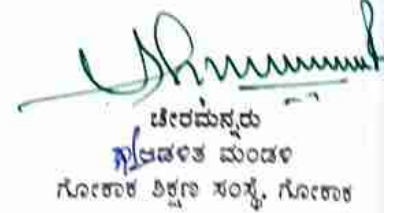 ಚೇರಮನ್ನರು
ಆಡಳಿತ ಮಂಡಳಿ
ಗೋಕಾಕ ಶಿಕ್ಷಣ ಸಂಸ್ಥೆ, ಗೋಕಾಕ